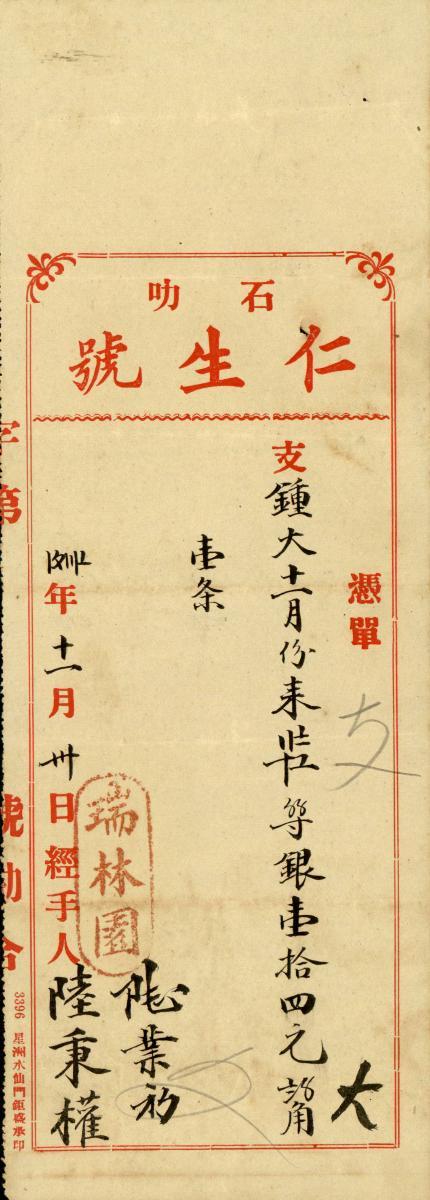 石叻
仁生號
憑單
支鍾大十一月份来
等銀壹拾四元
角
大
支
壹条
年十一月卅日經手人陸秉權
業初
瑞林園
字第
號勘合
3396 星洲水仙門鉅盛承印